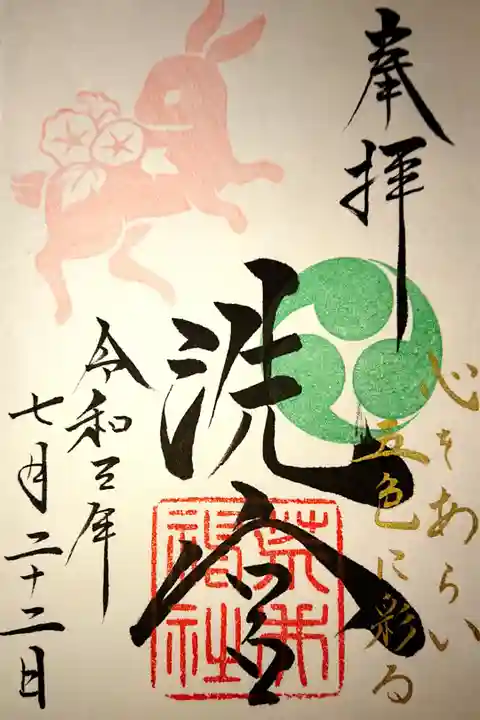 奉拝
心をあらい
五色に彩る
洗
令和三年
七月二十二日